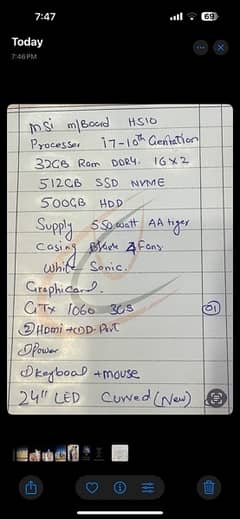 7:47
69
Today
7:46 PM
msi m/Board H510
Processer i7-10th Genration
32GB Ram DDR4. 16x2
512GB SSD NVME
500GB HDD
Supply 550watt AA tiger
Casing Black 4 Fans
White Sonic.
Graphicard.
GTX 1060 3GB
01
② Hdmi + DD-Port
① Power
① keyboad + mouse
24" LED Curved (New)